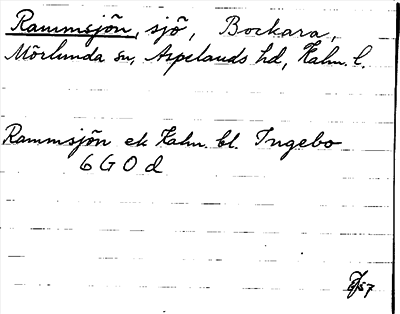 Rammsjön, sjö, Bockara,
Mörlunda sn, Aspelands hd, Kalm. l.
Rammsjön ek Kalm. bl. Ingebo
6 G O d